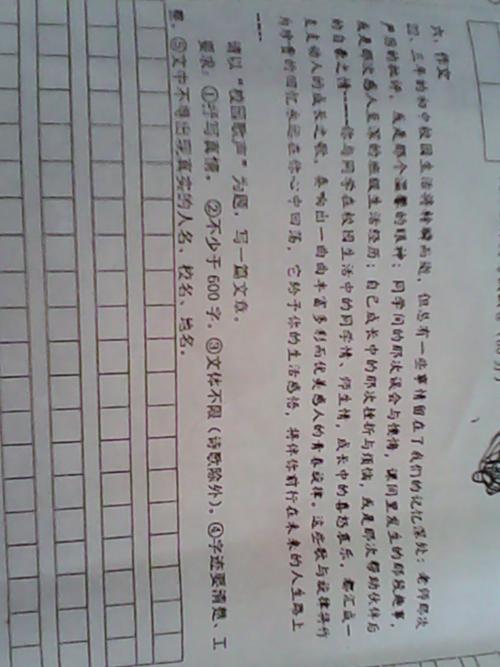 六、作文
22、三年的初中校园生活将转瞬而逝，但总有一些事情留在了我们的记忆深处：老师那次
严厉的批评，或是那个温馨的眼神；同学间的那次误会与懊悔，课间里发生的那段趣事，
或是那次感人至深的班级生活经历；自己成长中的那次挫折与烦恼，或是那次帮助伙伴后
的自豪之情……你与同学在校园生活中的同学情、师生情，成长中的喜怒哀乐，都汇成一
支支动人的成长之歌，奏响出一曲曲丰富多彩而优美感人的青春旋律。这些歌与旋律将作
为珍贵的回忆永远在你心中回荡，它给予你的生活感悟，将伴你前行在未来的人生路上
……
请以“校园歌声”为题，写一篇文章。
要求：①书写真情。②不少于600字。③文体不限（诗歌除外）。④字迹要清楚、工
整。⑤文中不得出现真实的人名、校名、地名。